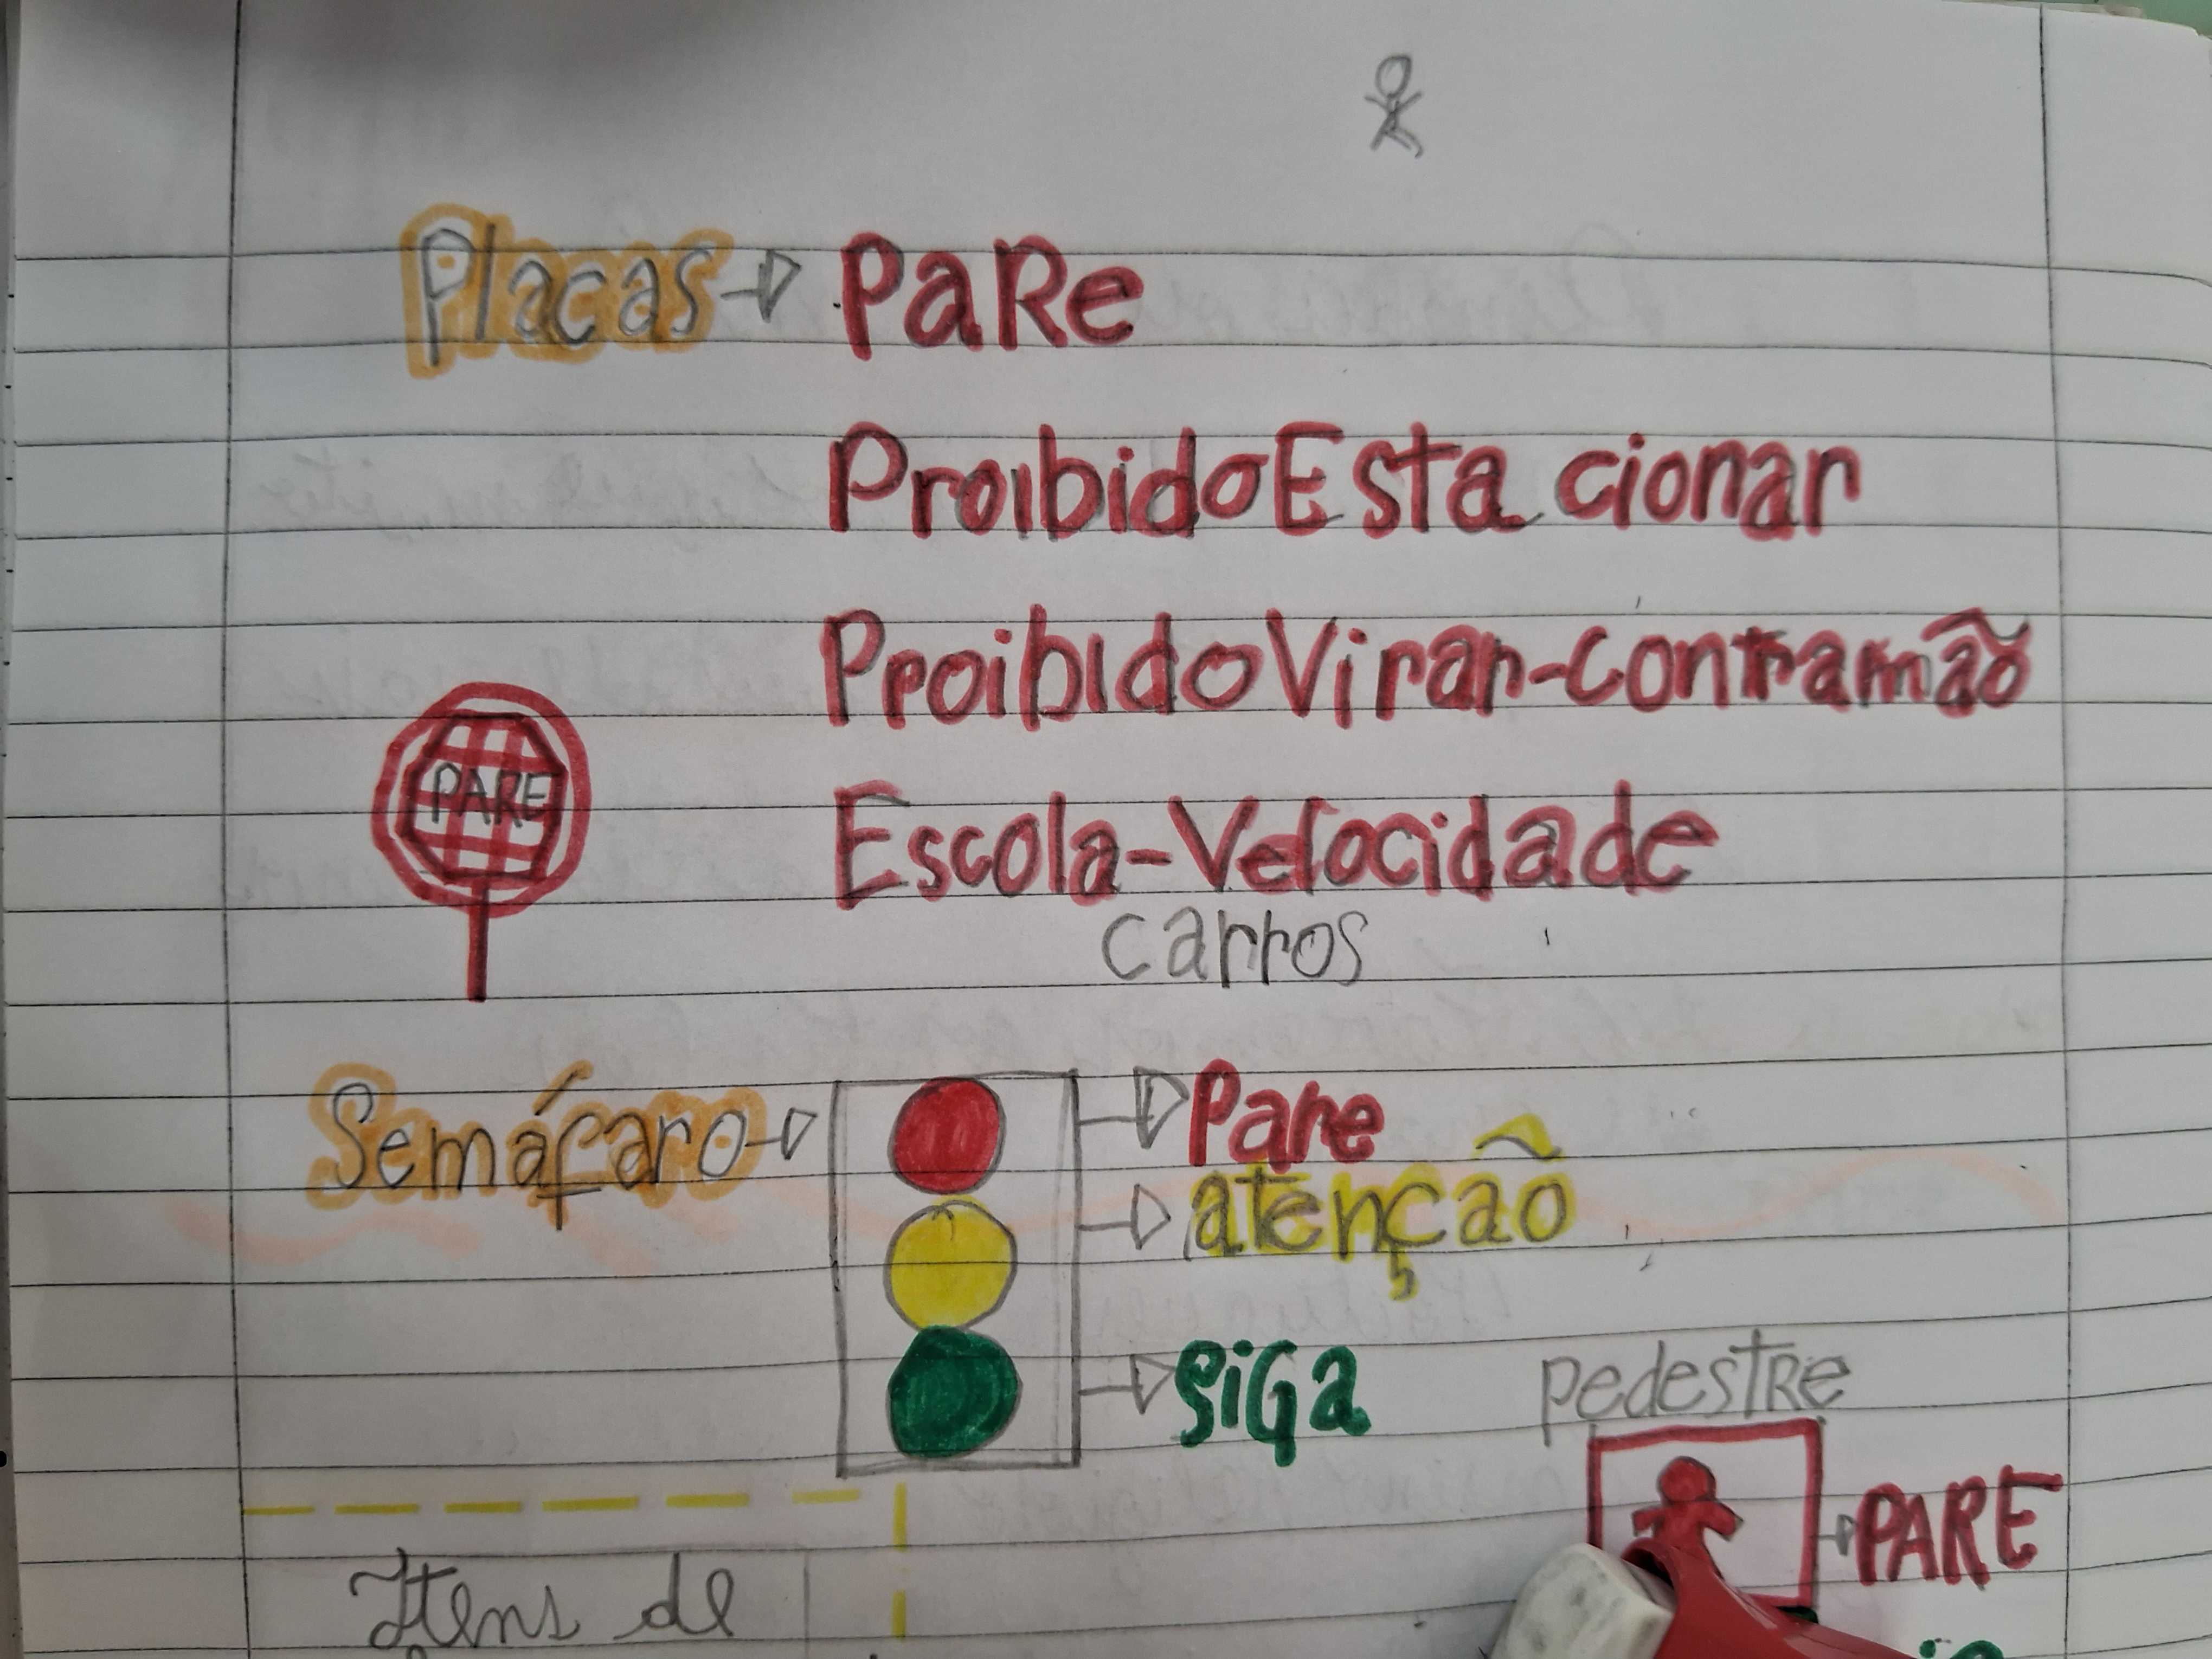 Placas PaRe
Proibido Estacionar
Proibido Virar-contramão
PARE
Escola-Velocidade
carros
Semáfaro Pare
atenção
SiGa
pedestre
PARE
Itens de